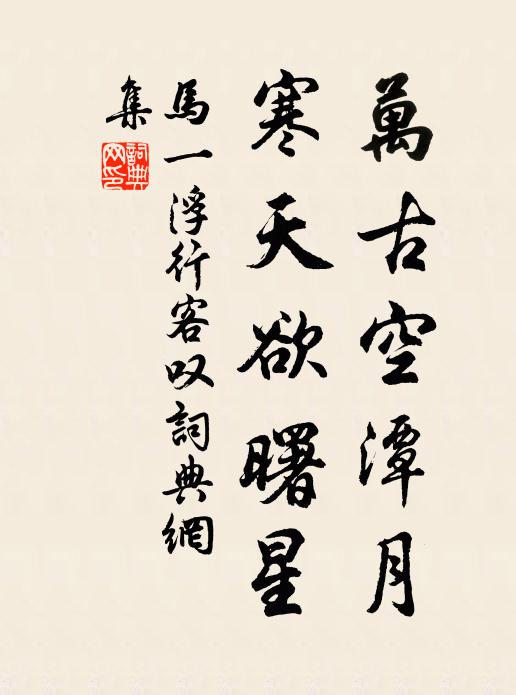 萬古空潭月
寒天欲曙星
馬一浮行客叹詞典網
集
詞典網印